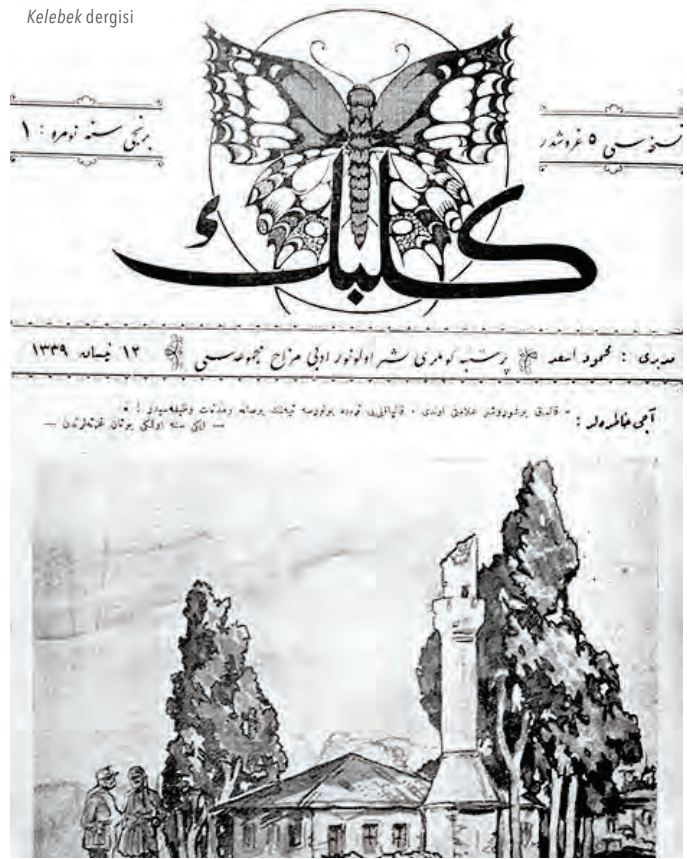 Kelebek dergisi
نسخه‌سی ٥ غروشدر
برنجی سنه نومرو : ١
كلبك
مدیری : محمود اسعد پنجشنبه كونلری نشر اولونور ادبی مزاح مجموعه‌سی ١٢ نیسان ١٣٣٩
آجی خاطره‌لر :
ایكی سنه اولكی یونان غزته‌لرندن —